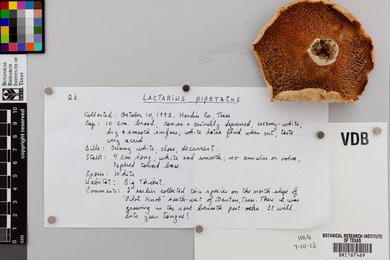 26. LACTARIUS piperatus
Collected: October 10, 1992, Hardin Co, Texas.
Cap: 10 cm broad; convex & centrally depressed, creamy-white,
dry & smooth surface; white latex flued when cut, taste
very acrid.
Gills: Creamy white, close, decurrent.
Stalk: 4 cm long, white and smooth; no annulus or volva,
tapered toward base.
Spores: White
Habitat: Big Thicket.
Comments: I earlier collected this species on the north edge of
"Pilot Knob" south-west of Denton, Texas. There it was
growing in the soil beneath post-oaks. It will
bite your tongue!
VDB
IMG
7-10-23
BOTANICAL RESEARCH INSTITUTE
OF TEXAS
BRIT67469
BOTANICAL
RESEARCH
INSTITUTE
OF TEXAS